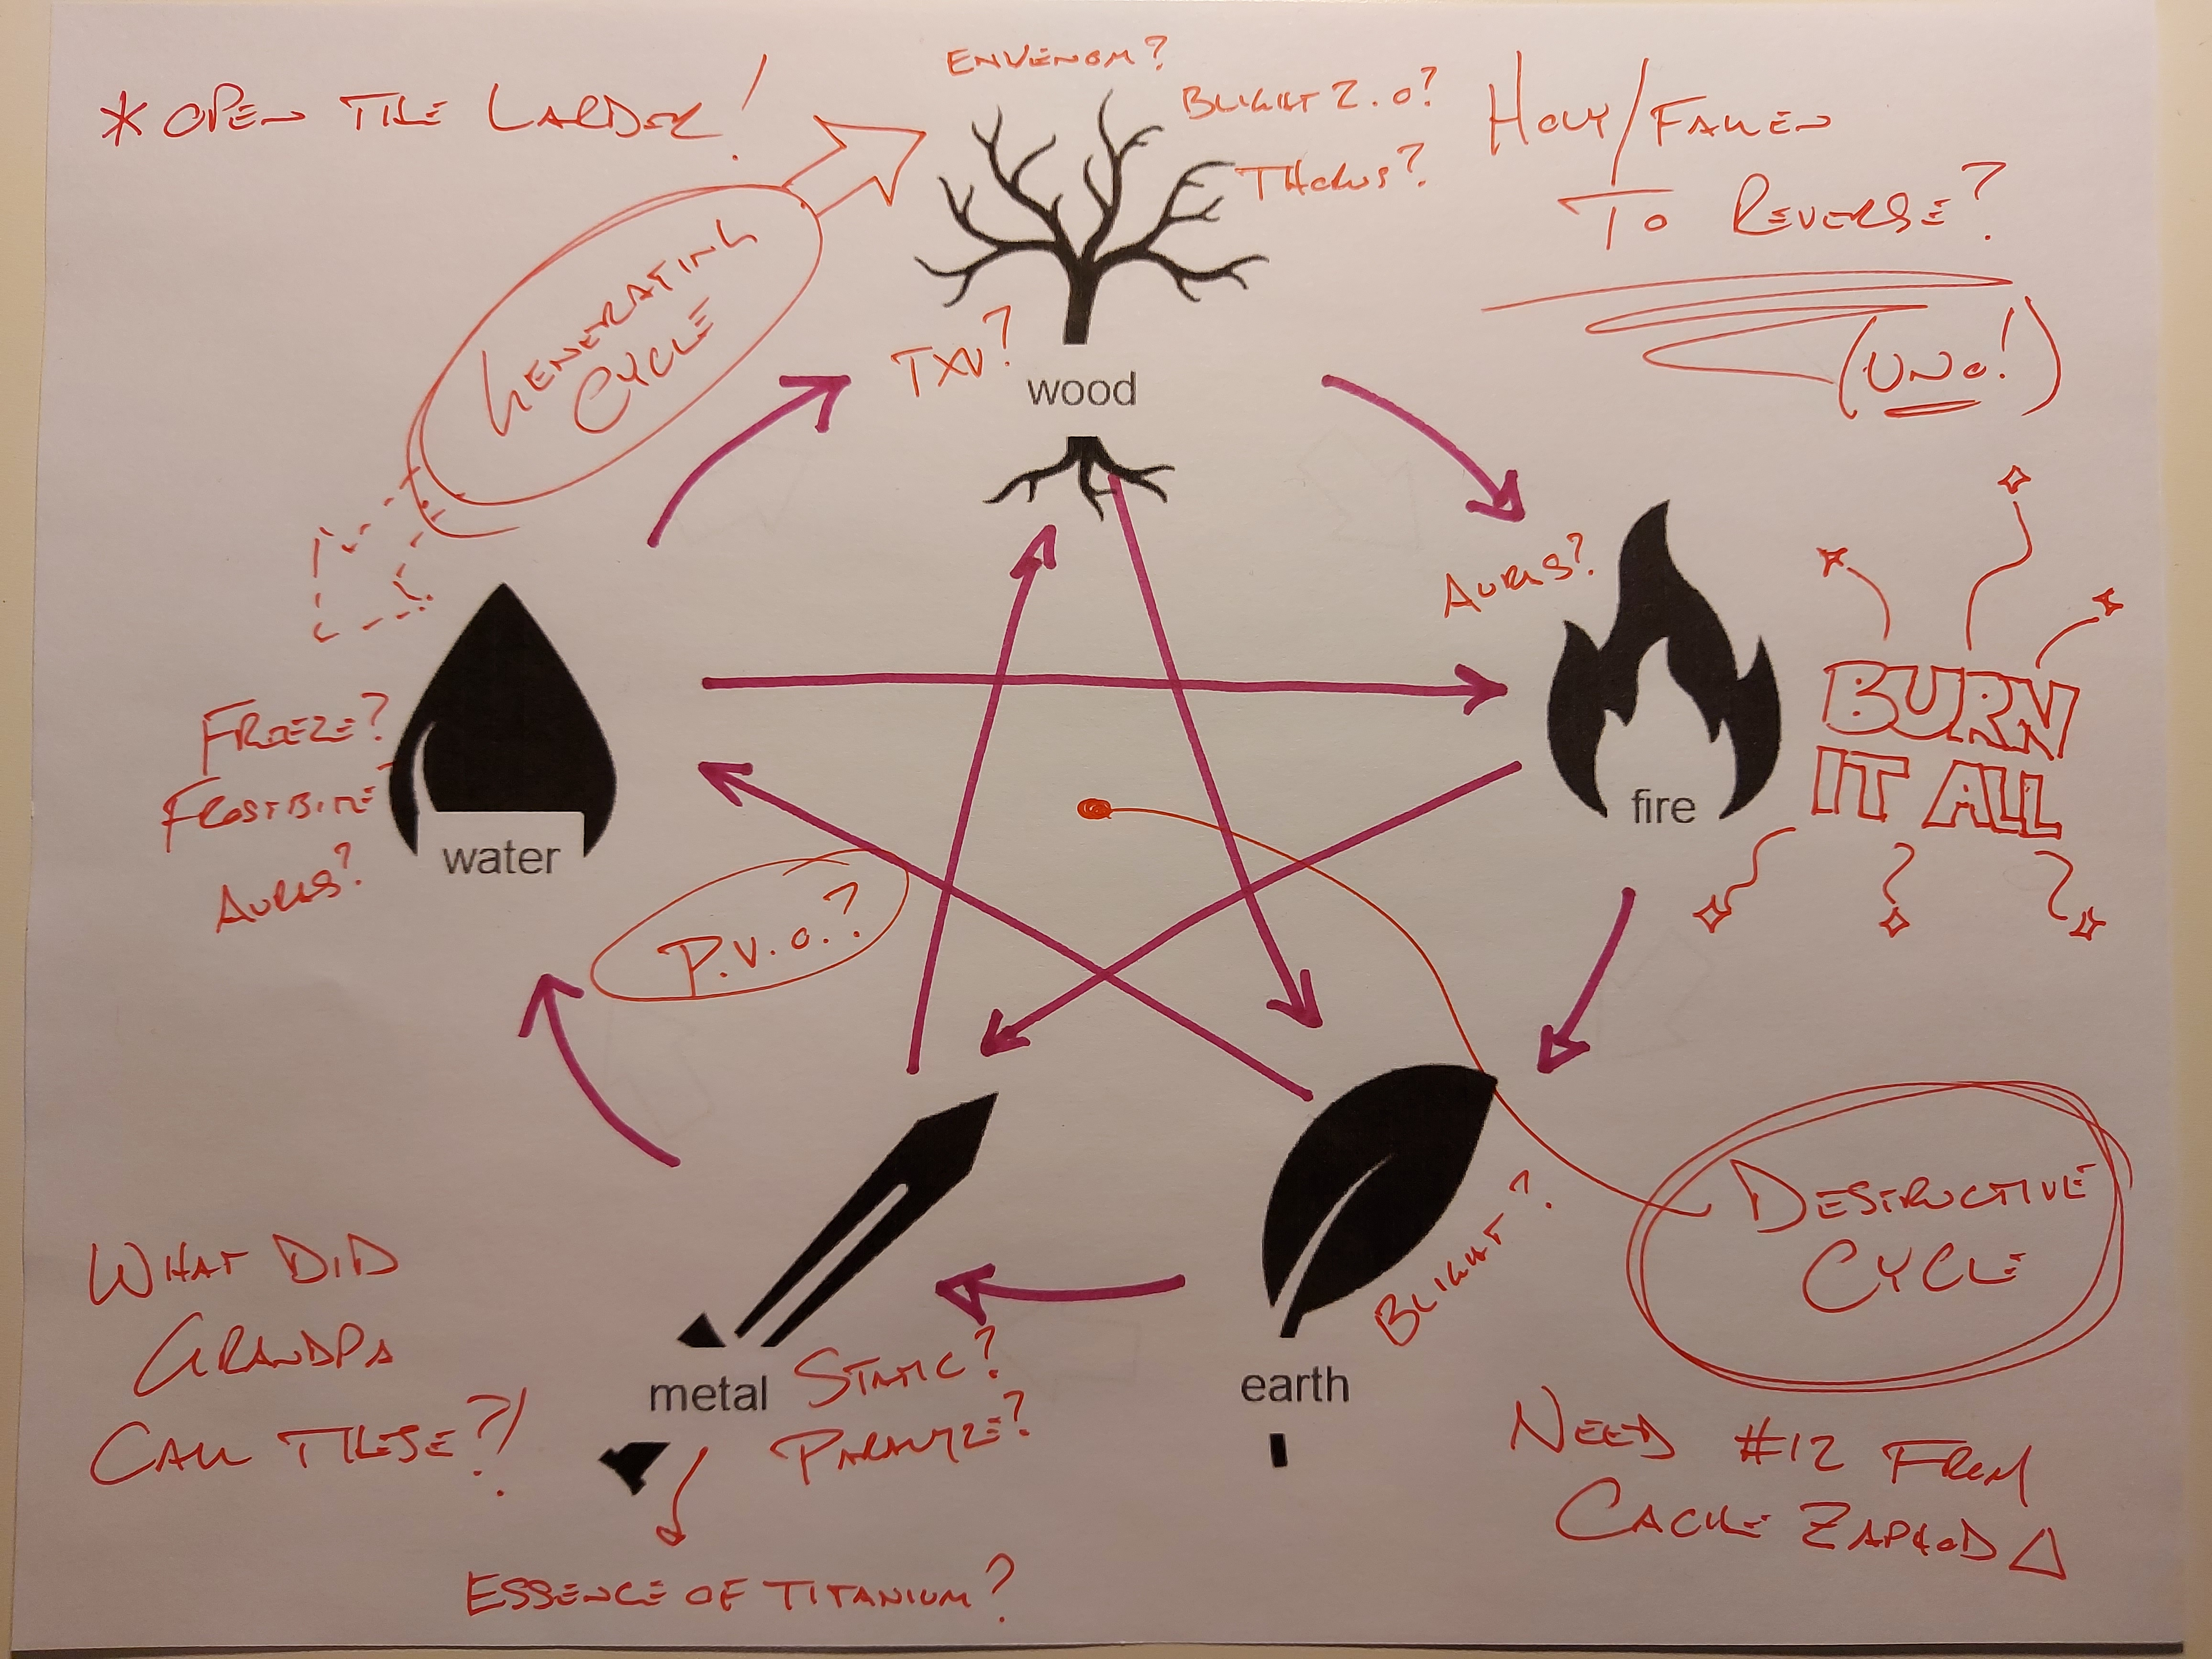 ENVENOM?
* OPEN THE LARDER!
BLIGHT 2.0?
HOLY/FALLEN
THORNS?
TO REVERSE?
GENERATING
CYCLE
(UNO!)
TXN?
wood
AURAS?
BURN
IT ALL
fire
FREEZE?
FROSTBITE?
AURAS?
water
P.V.O.?
DESTRUCTIVE
CYCLE
BLIGHT?
WHAT DID
GRANDPA
CALL THESE?!
metal
STATIC?
PARALYZE?
earth
NEED #12 FROM
CACHE ZAPHOD △
ESSENCE OF TITANIUM?